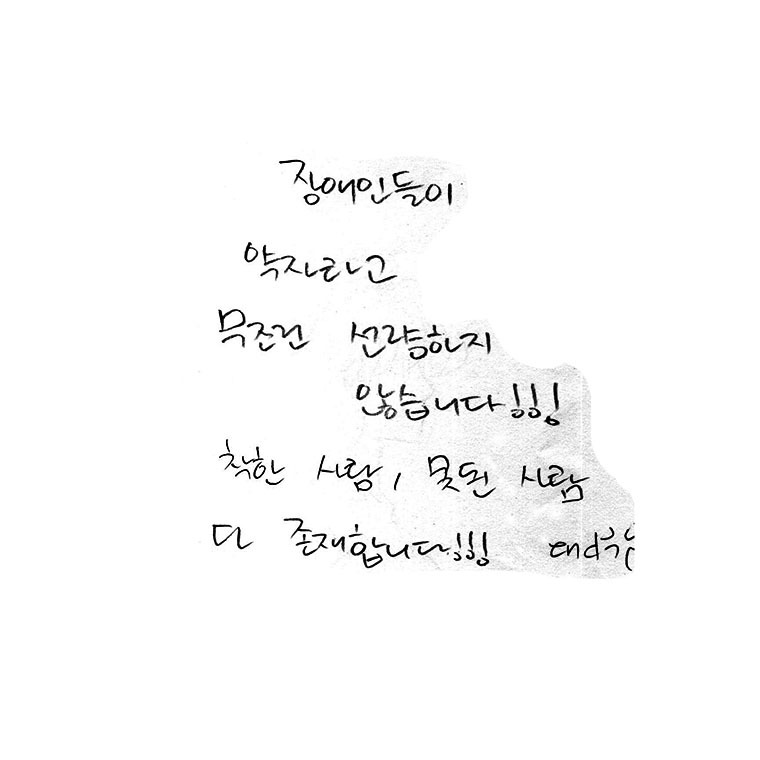 장애인들이
약자라고
무조건 선량하지
않습니다!!!
착한 사람, 못된 사람
다 존재합니다!!! end